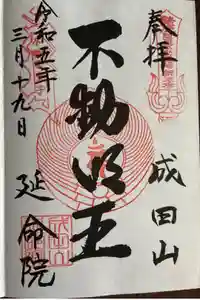 奉拝
成田山
不動明王
延命院
令和五年
三月十九日